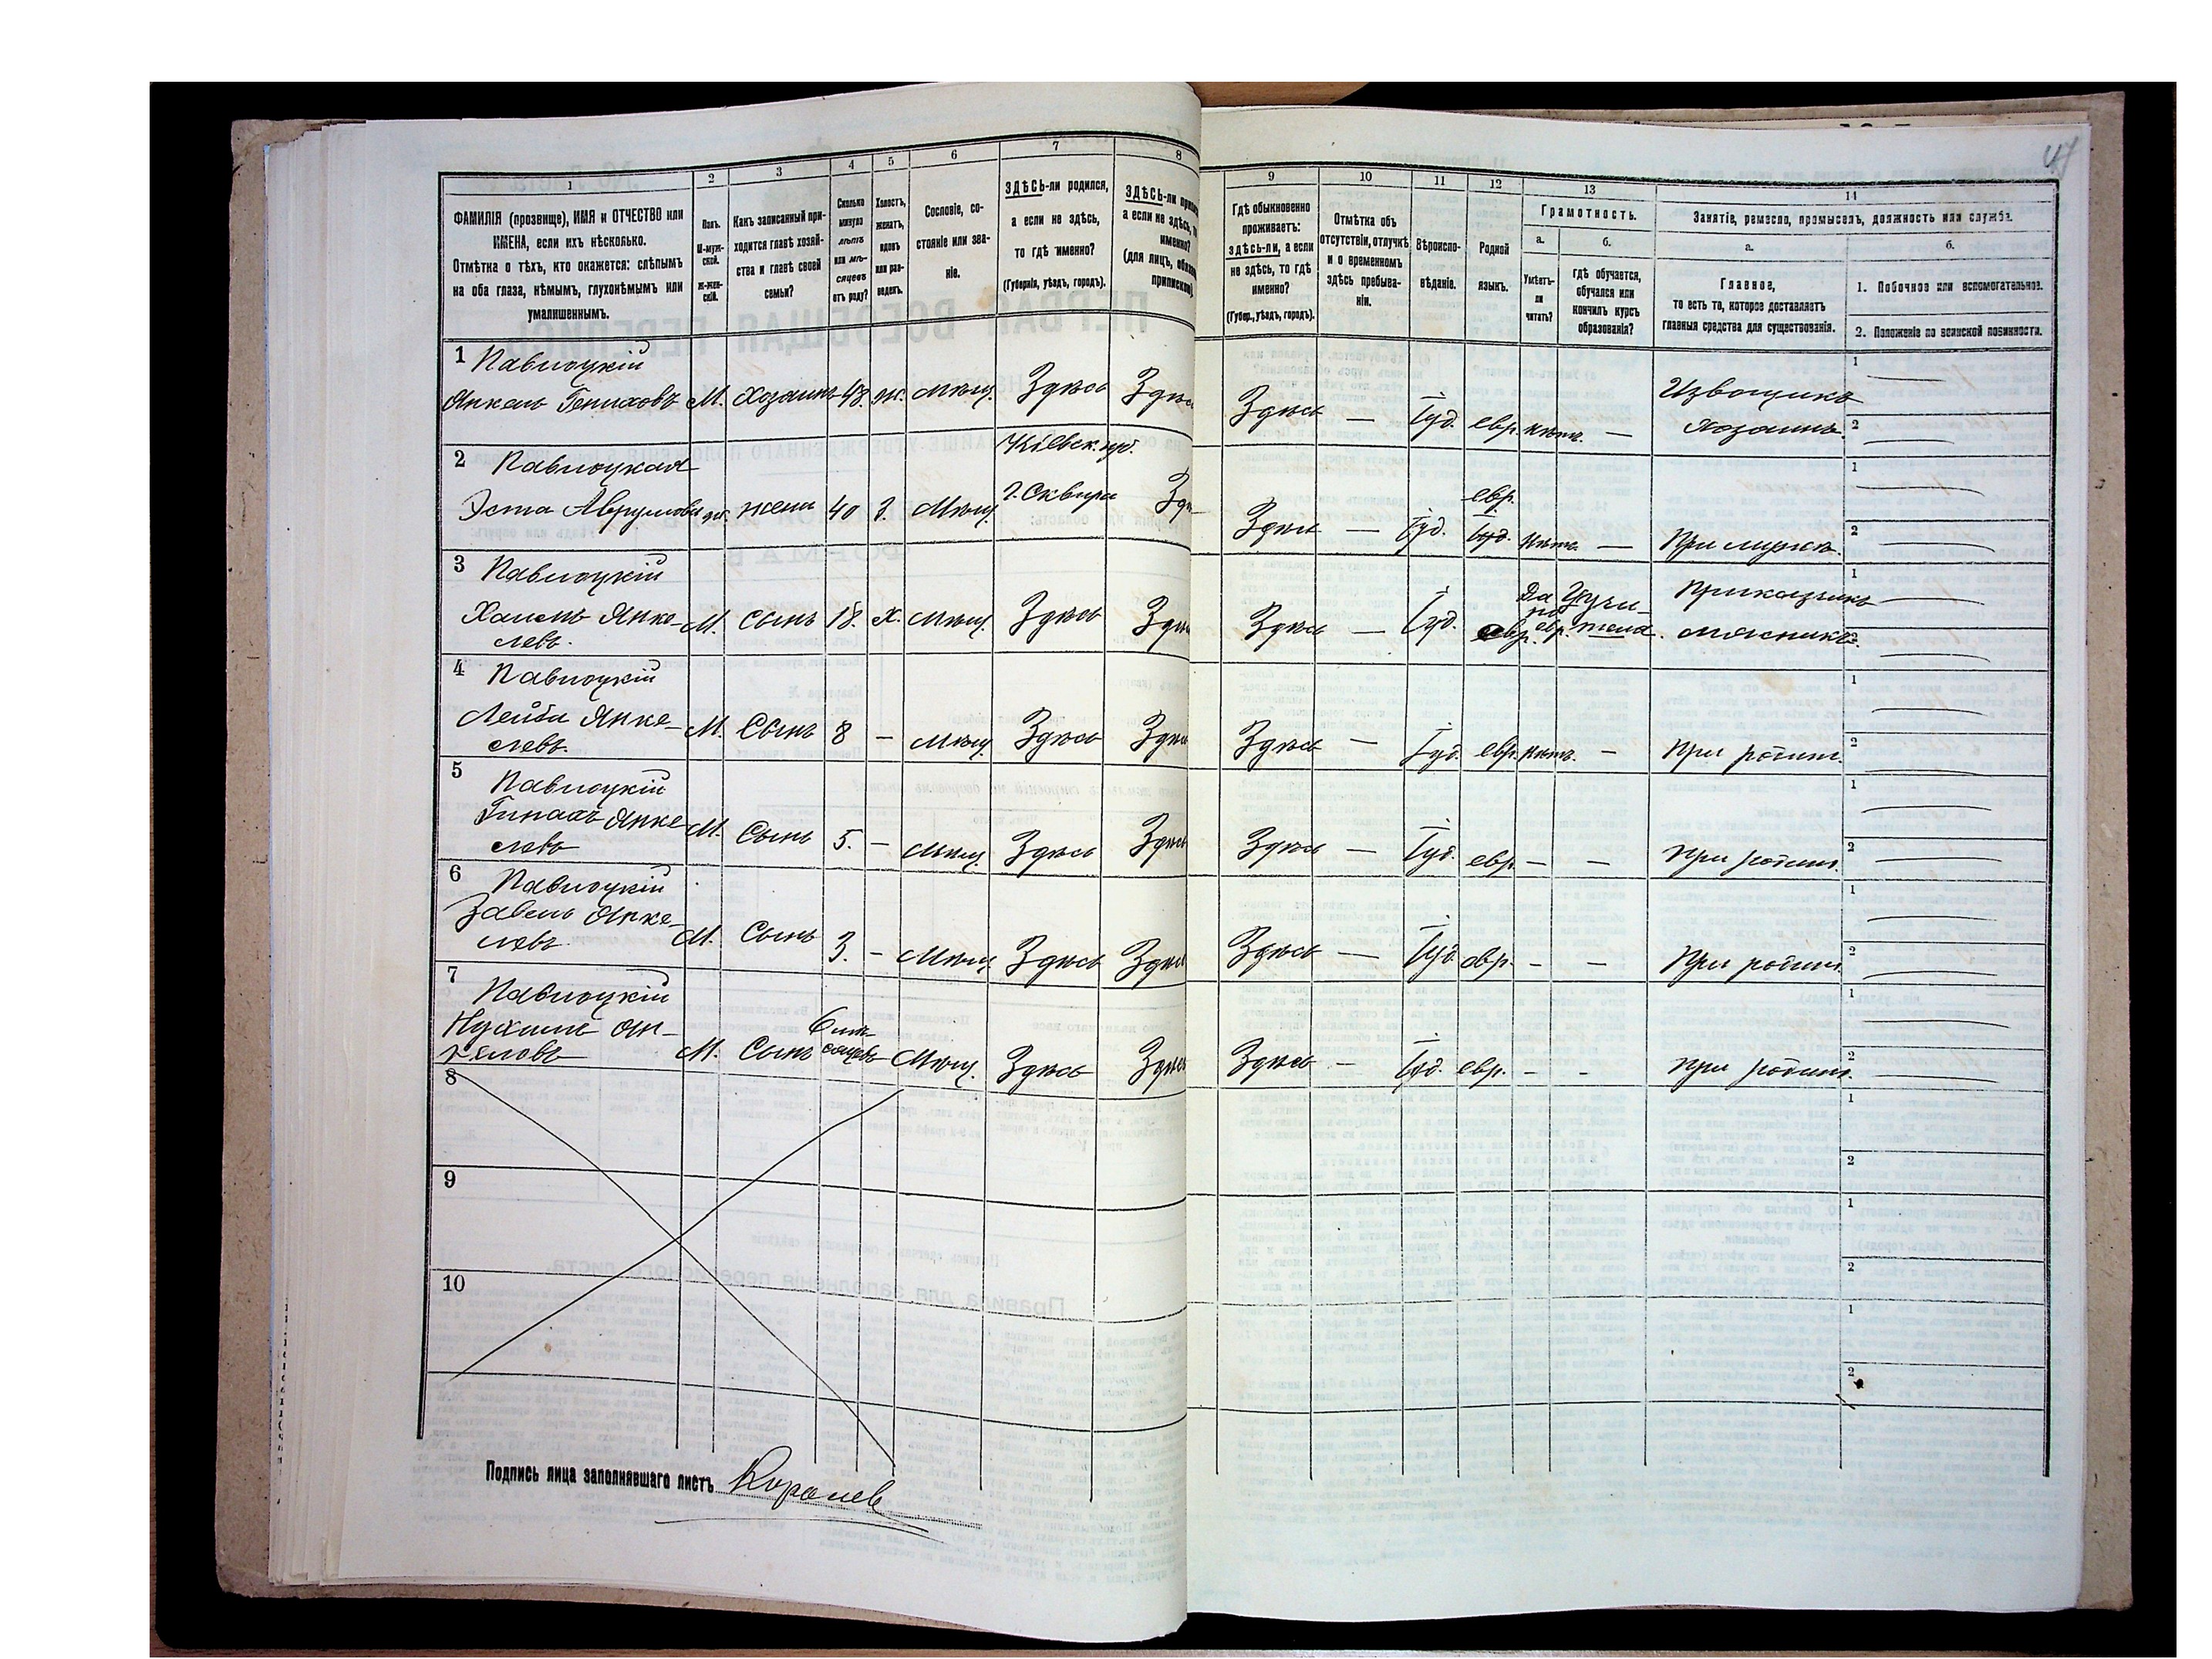 47
1 2 3 4 5 6 7 8 9 10 11 12 13 14
ФАМИЛІЯ (прозвище), ИМЯ и ОТЧЕСТВО или
ИМЕНА, если ихъ нѣсколько.
Отмѣтка о тѣхъ, кто окажется: слѣпымъ
на оба глаза, нѣмымъ, глухонѣмымъ или
умалишеннымъ.
Полъ.
М-муж-
ской.
Ж-жен-
скій.
Какъ записанный при-
ходится главѣ хозяй-
ства и главѣ своей
семьи?
Сколько
минуло
лѣтъ
или мѣ-
сяцевъ
отъ роду?
Холостъ,
женатъ,
вдовъ
или раз-
веденъ.
Сословіе, со-
стояніе или зва-
ніе.
ЗДѢСЬ-ли родился,
а если не здѣсь,
то гдѣ именно?
(Губернія, уѣздъ, городъ).
ЗДѢСЬ-ли
а если не здѣсь,
именно?
(для лицъ,
Гдѣ обыкновенно
проживаетъ:
здѣсь-ли, а если
не здѣсь, то гдѣ
именно?
(Губер., уѣздъ, городъ).
Отмѣтка объ
отсутствіи, отлучкѣ
и о временномъ
здѣсь пребыва-
ніи.
Вѣроиспо-
вѣданіе.
Родной
языкъ.
Грамотность.
а. б.
Умѣетъ-
ли
читать?
гдѣ обучается,
обучался или
кончилъ курсъ
образованія?
Занятіе, ремесло, промыселъ, должность или служба.
а. б.
Главное,
то есть то, которое доставляетъ
главныя средства для существованія.
1. Побочное или вспомогательное.
2. Положеніе по воинской повинности.
1 Павлоцкій
Янкель Гениховъ М. Хозяинъ 48. ж. Мѣщ. Здѣсь Здѣсь Здѣсь — Іуд. евр. нѣтъ. — Извощикъ
Хозяинъ.
2 Павлоцкая Кіевск. губ.
Эста Аврумова ж. жена 40 З. Мѣщ. г. Сквира Зд Здѣсь — Іуд. евр. нѣтъ — При мужѣ.
3 Павлоцкій
Хаимъ Янке-
левъ. М. Сынъ 18. Х. Мѣщ. Здѣсь Здѣсь Здѣсь — Іуд. евр. Да по евр. У учи-
теля. Прикащикъ
мясника.
4 Павлоцкій
Лейба Янке-
левъ. М. Сынъ 8 — Мѣщ. Здѣсь Здѣсь Здѣсь — Іуд. евр. нѣтъ. — При родит.
5 Павлоцкій
Гинахъ Янке-
левъ М. Сынъ 5. — Мѣщ. Здѣсь Здѣсь Здѣсь — Іуд. евр. — — При родит.
6 Павлоцкій
Завель Янке-
левъ М. Сынъ 3. — Мѣщ. Здѣсь Здѣсь Здѣсь — Іуд. евр. — — При родит.
7 Павлоцкій
Нухимъ Ян-
келевъ М. Сынъ 6 мѣ-
сяцевъ Мѣщ. Здѣсь Здѣсь Здѣсь — Іуд. евр. — — При родит.
8
9
10
Подпись лица заполнявшаго листъ Королев